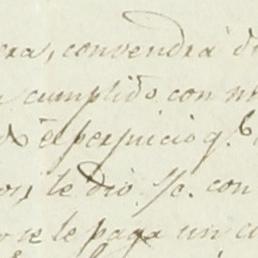 era, convendrá d
cumplido con m
el perjuicio q.
le dio. Sc. con
se le paga un c